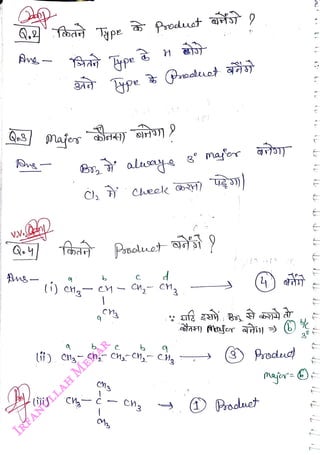 Q.2 कितने Type के Product बनेंगे ?
Ans — जितने Type के H होंगे
उतने Type के Product बनेंगे
Q.3 Major कौनसा बनेगा ?
Ans — Br₂ में always 3° major बनेगा
Cl₂ में check करना पड़ेगा
V.V.
Q.4 कितने Product बनेंगे ?
a b c d
Ans — (i) CH₃ — CH — CH₂ — CH₃ → ④ बनेंगे
|
CH₃
a
∵ यदि इसमें Br₂ से कराये तो
कौनसा major बनेगा ⇒ ⓑ b/c 3°
a b c b a
(ii) CH₃ — CH₂ — CH₂ — CH₂ — CH₃ → ③ Product
Major = ⓑ
CH₃
|
(iii) CH₃ — C — CH₃ → ① Product
|
CH₃
IRFANULLAH MEHAR